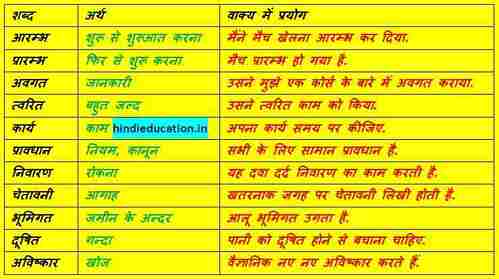 शब्द अर्थ वाक्य में प्रयोग
आरम्भ शुरु से शुरुआत करना मैंने मैच खेलना आरम्भ कर दिया.
प्रारम्भ फिर से शुरु करना मैच प्रारम्भ हो गया है.
अवगत जानकारी उसने मुझें एक कोर्स के बारे में अवगत कराया.
त्वरित बहुत जल्द उसने त्वरित काम को किया.
कार्य काम hindieducation.in अपना कार्य समय पर कीजिए.
प्रावधान नियम, कानून सभी के लिए सामान प्रावधान है.
निवारण रोकना यह दवा दर्द निवारण का काम करती है.
चेतावनी आगाह खतरनाक जगह पर चेतावनी लिखी होती है.
भूमिगत जमीन के अन्दर आलू भूमिगत उगता है.
दूषित गन्दा पानी को दूषित होने से बचाना चाहिए.
अविष्कार खोज वैज्ञानिक नए नए अविष्कार करते हैं.